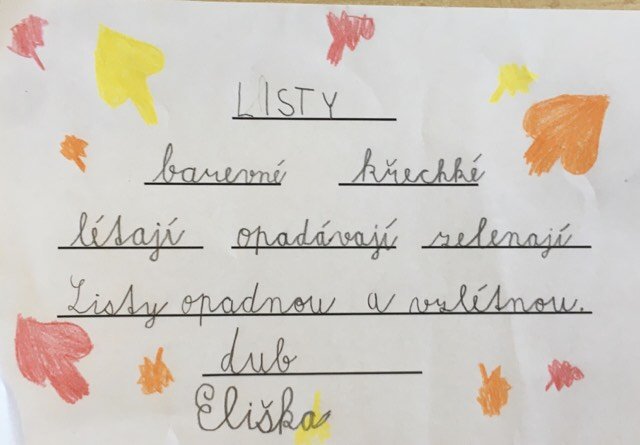 LISTY
barevné křechké
létají opadávají zelenají
Listy opadnou a vzlétnou.
dub
Eliška